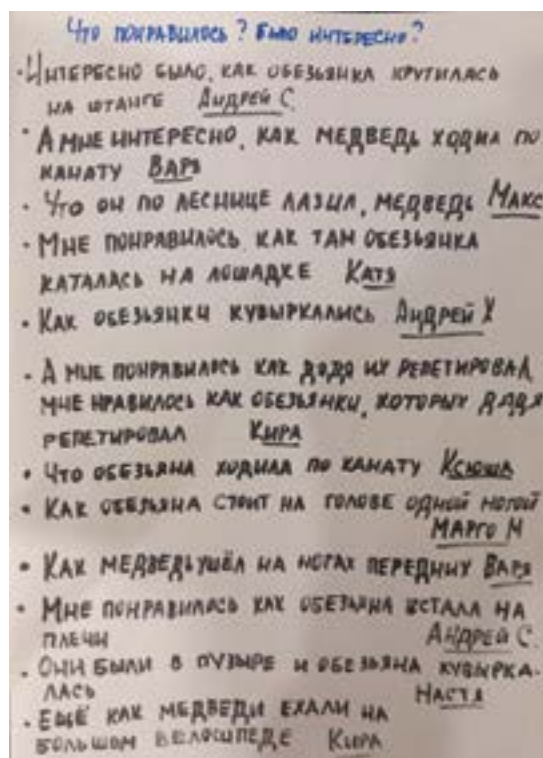 Что понравилось? Было интересно?
· Интересно было, как обезьянка крутилась
на штанге Андрей С.
· А мне интересно, как медведь ходил по
канату Варя
· Что он по леснице лазил, медведь Макс
· Мне понравилось как там обезьянка
каталась на лошадке Катя
· Как обезьянки кувыркались Андрей Х
· А мне понравилось как дядя их репетировал,
мне нравилось как обезьянки, которых дядя
репетировал Кира
· Что обезьяна ходила по канату Ксюша
· Как обезьяна стоит на голове одной ногой
Марго М
· Как медведь ушёл на ногах передних Варя
· Мне понравилась как обезьяна встала на
плечи Андрей С.
· Они были в пузыре и обезьяна кувырка-
лась Настя
· Ещё как медведи ехали на
большом велосипеде Кира